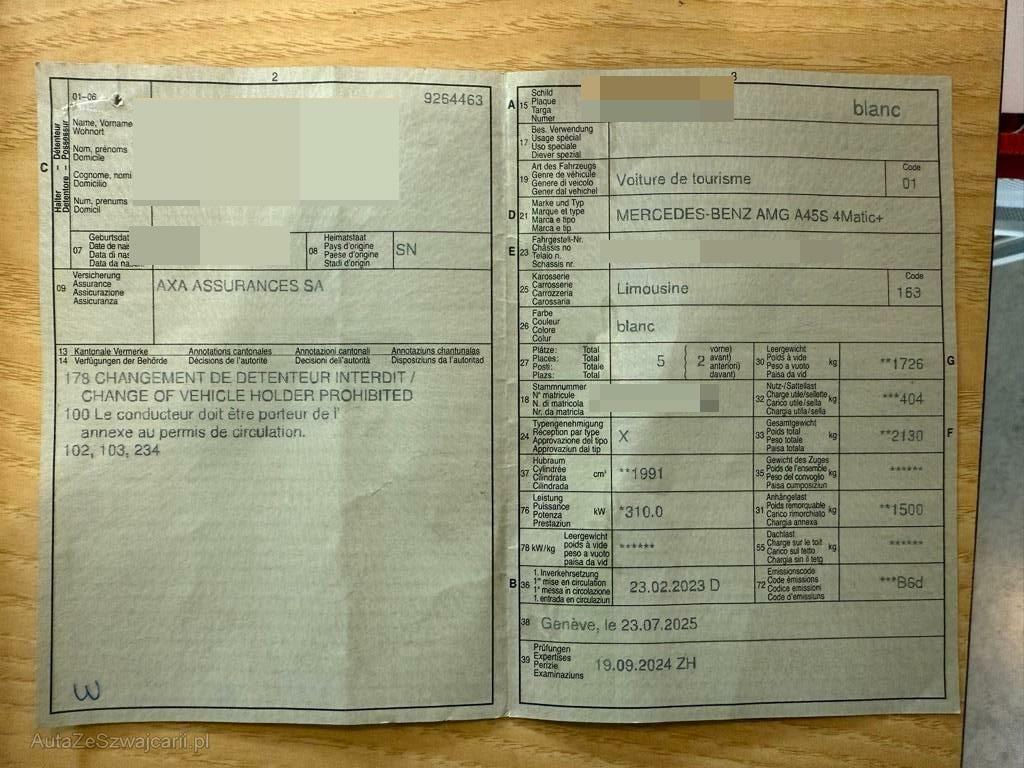 2
01-06
9264463
C
Halter - Détenteur
Detentore - Possessur
Name, Vorname
Wohnort
Nom, prénoms
Domicile
Cognome, nomi
Domicilio
Num, prenums
Domicil
07
Geburtsdat
Date de nai
Data di nas
Data da na
08
Heimatstaat
Pays d'origine
Paese d'origine
Stadi d'origin
SN
09
Versicherung
Assurance
Assicurazione
Assicuranza
AXA ASSURANCES SA
13 Kantonale Vermerke Annotations cantonales Annotazioni cantonali Annotaziuns chantunalas
14 Verfügungen der Behörde Décisions de l'autorité Decisioni dell'autorità Disposiziuns da l'autoritad
178 CHANGEMENT DE DETENTEUR INTERDIT /
CHANGE OF VEHICLE HOLDER PROHIBITED
100 Le conducteur doit être porteur de l'
annexe au permis de circulation.
102, 103, 234
W
3
A
15
Schild
Plaque
Targa
Numer
blanc
17
Bes. Verwendung
Usage spécial
Uso speciale
Diever spezial
19
Art des Fahrzeugs
Genre de véhicule
Genere di veicolo
Gener dal vehichel
Voiture de tourisme
Code
01
D
21
Marke und Typ
Marque et type
Marca e tipo
Marca e tip
MERCEDES-BENZ AMG A45S 4Matic+
E
23
Fahrgestell-Nr.
Châssis no
Telaio n.
Schassis nr.
25
Karosserie
Carrosserie
Carrozzeria
Carossaria
Limousine
Code
163
26
Farbe
Couleur
Colore
Colur
blanc
27
Plätze: Total
Places: Total
Posti: Totale
Plazs: Total
5
2
vorne)
avant)
anteriori)
davant)
30
Leergewicht
Poids à vide
Peso a vuoto
Paisa da vid
kg
**1726
G
18
Stammnummer
N° matricule
N. di matricola
Nr. da matricla
32
Nutz-/Sattellast
Charge utile/sellette
Carico utile/sella
Chargia utila/sella
kg
***404
24
Typengenehmigung
Réception par type
Approvazione del tipo
Approvaziun dal tip
X
33
Gesamtgewicht
Poids total
Peso totale
Paisa totala
kg
**2130
F
37
Hubraum
Cylindrée
Cilindrata
Cilindrada
cm³
**1991
35
Gewicht des Zuges
Poids de l'ensemble
Peso del convoglio
Paisa cumposiziun
kg
******
76
Leistung
Puissance
Potenza
Prestaziun
kW
*310.0
31
Anhängelast
Poids remorquable
Carico rimorchiato
Chargia annexa
kg
**1500
78 kW/kg
Leergewicht
poids à vide
peso a vuoto
paisa da vid
******
55
Dachlast
Charge sur le toit
Carico sul tetto
Chargia sin il tetg
kg
******
B
36
1. Inverkehrsetzung
1re mise en circulation
1a messa in circolazione
1. entrada en circulaziun
23.02.2023 D
72
Emissionscode
Code émissions
Codice emissioni
Code d'emissiuns
***B6d
38
Genève, le 23.07.2025
39
Prüfungen
Expertises
Perizie
Examinaziuns
19.09.2024 ZH
AutaZeSzwajcarii.pl